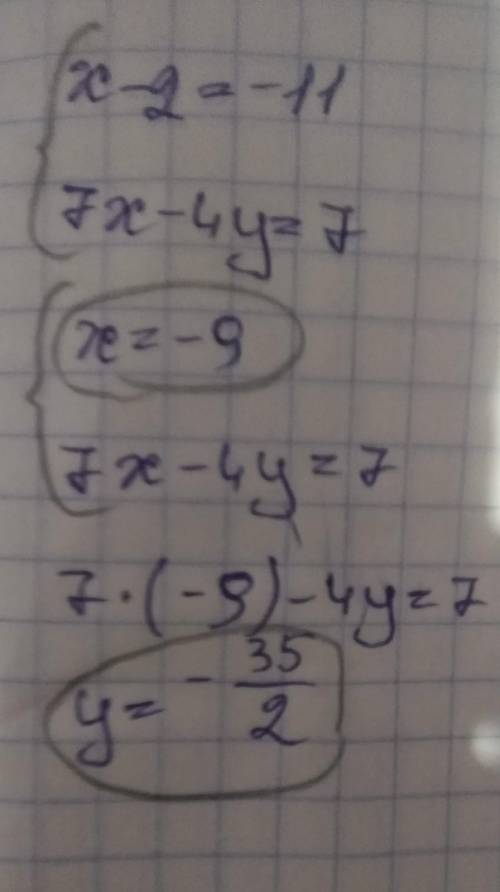 x - 2 = -11
7x - 4y = 7
x = -9
7x - 4y = 7
7 · (-9) - 4y = 7
y = - 35/2